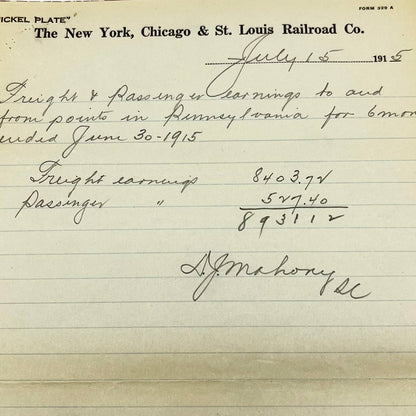 FORM 329 A
"NICKEL PLATE"
The New York, Chicago & St. Louis Railroad Co.
July 15 1915
Freight & Passenger earnings to and
from points in Pennsylvania for 6 mon
ended June 30-1915
Freight earnings 8403.72
Passenger " 527.40
893112
D.J. Mahony